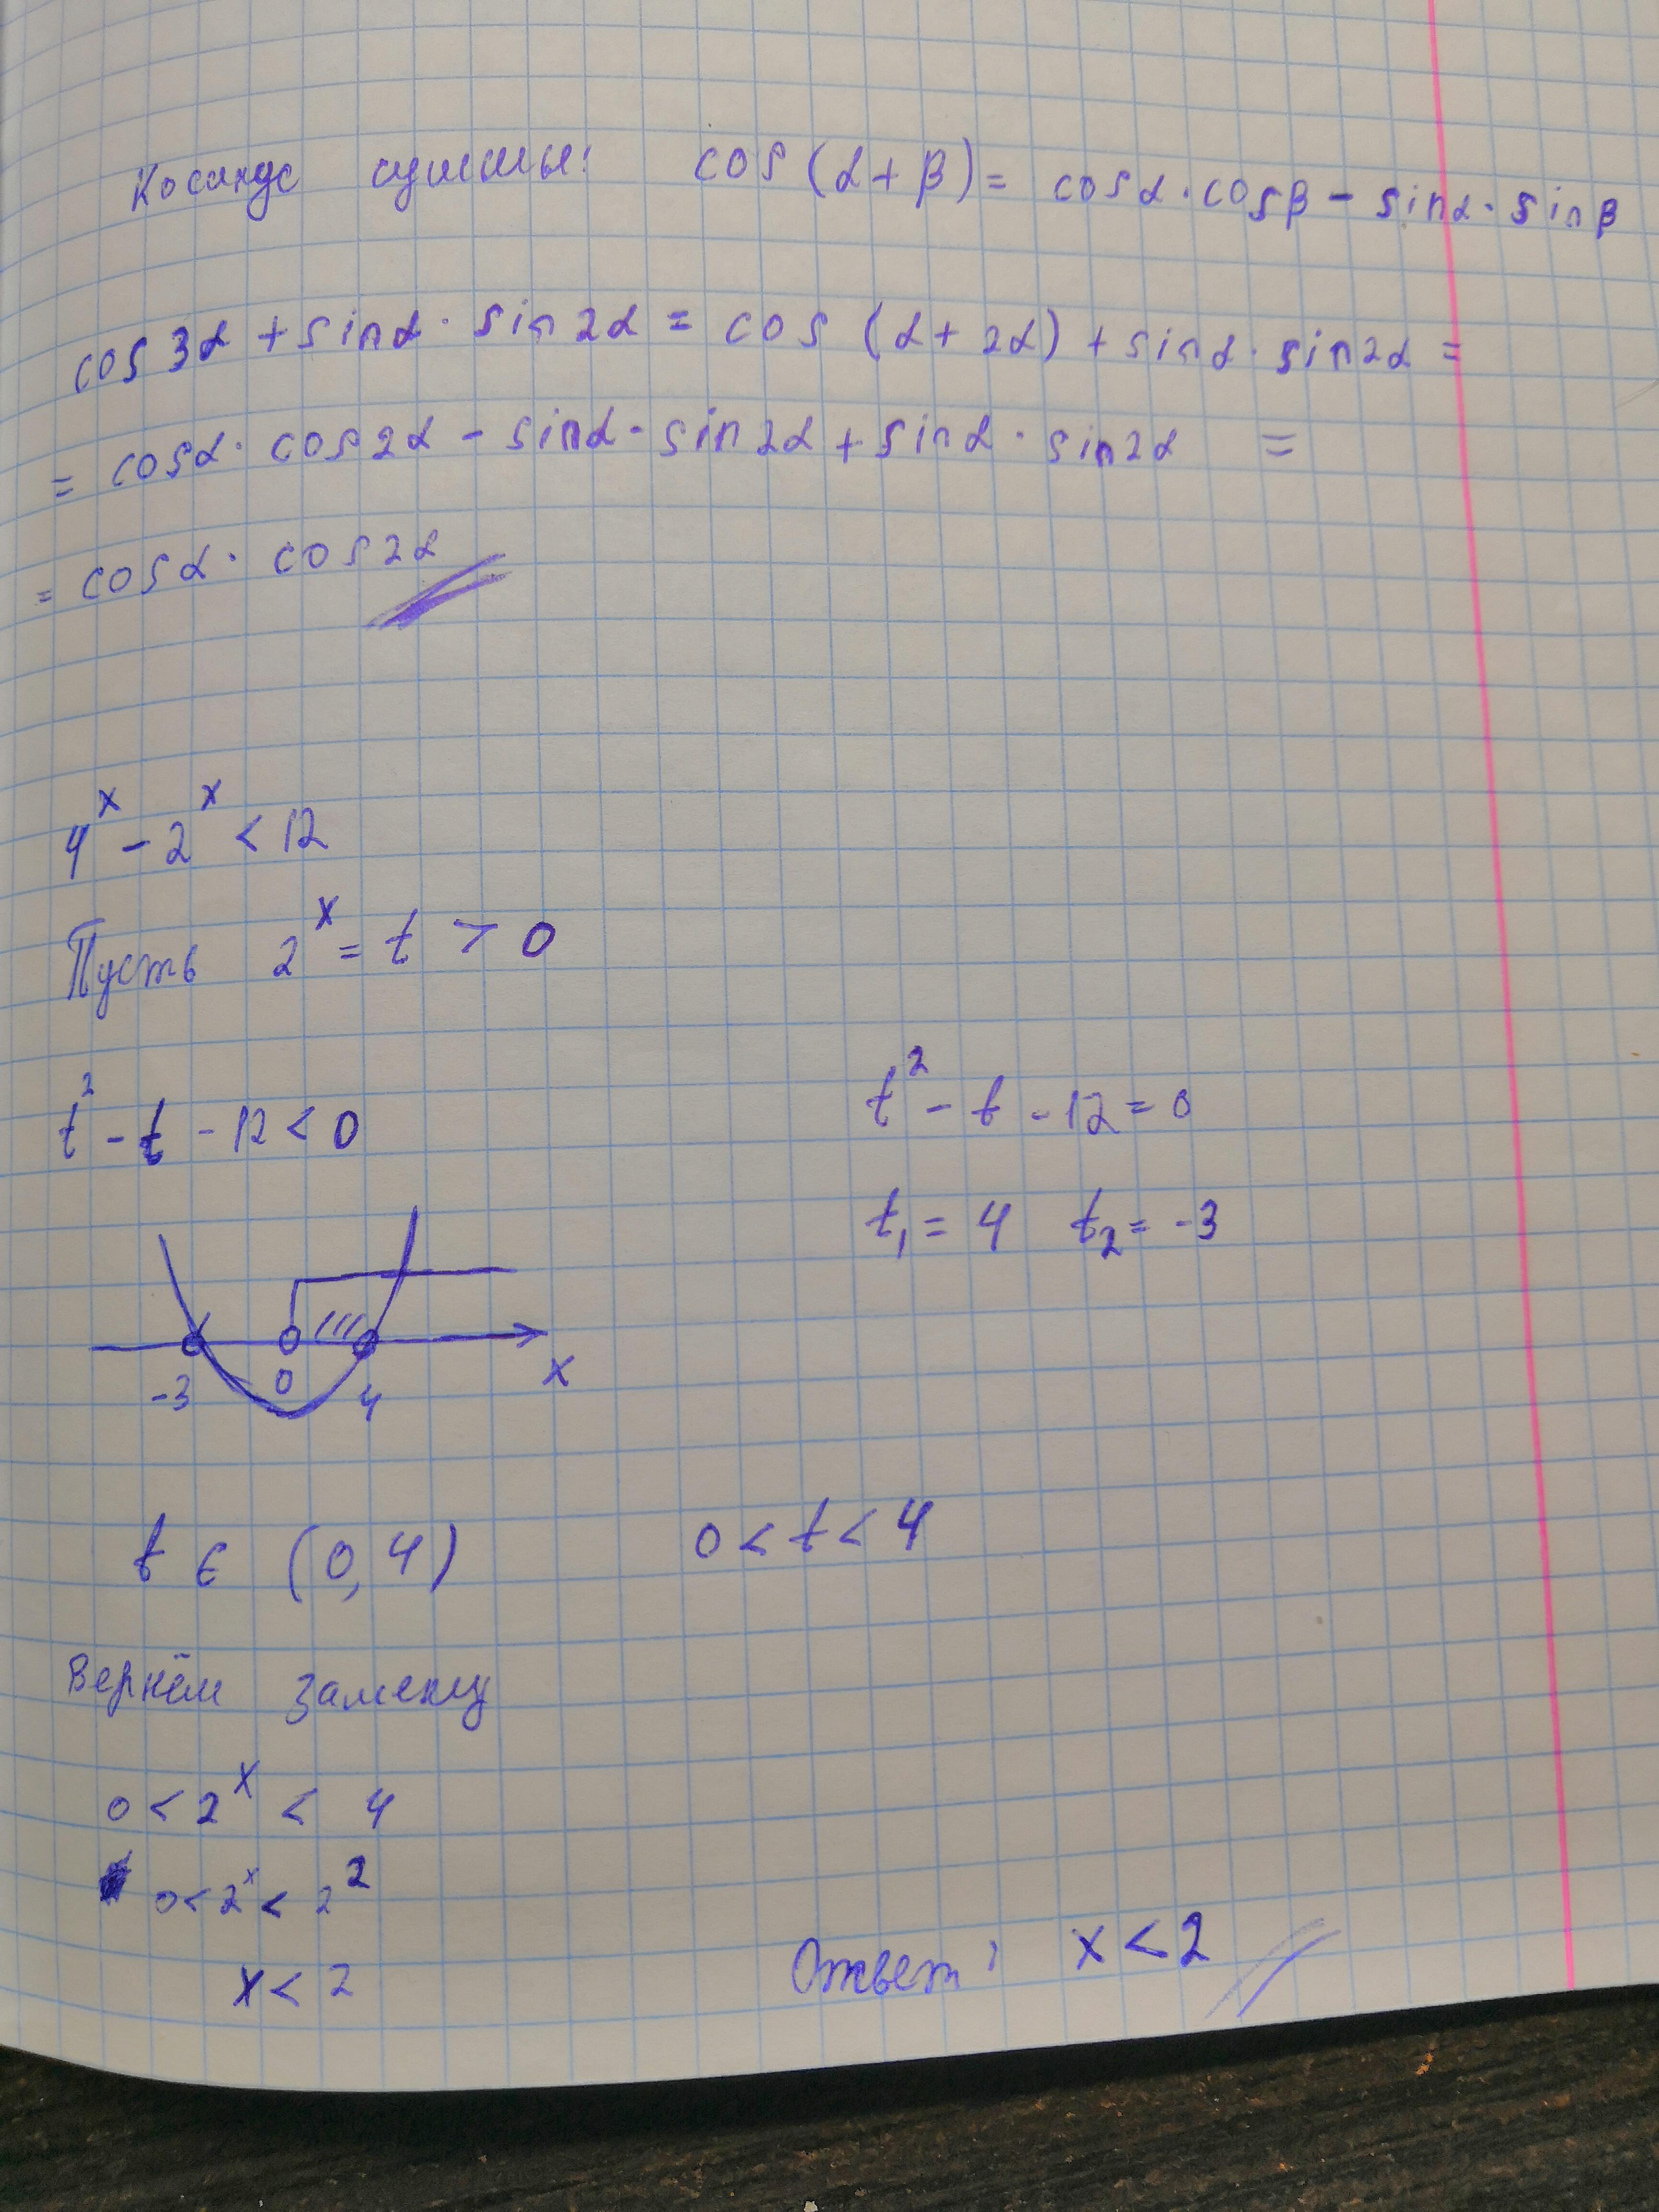 Косинус суммы: cos(α+β)= cosα·cosβ - sinα·sinβ
cos3α+sinα·sin2α = cos(α+2α)+sinα·sin2α =
= cosα·cos2α - sinα·sin2α+sinα·sin2α =
= cosα·cos2α
4ˣ-2ˣ<12
Пусть 2ˣ=t > 0
t²-t-12<0
t²-t-12=0
t₁=4 t₂=-3
-3 0 4 x
t ∈ (0,4) 0<t<4
Вернём замену
0<2ˣ<4
0<2ˣ<2²
x<2
Ответ: x<2